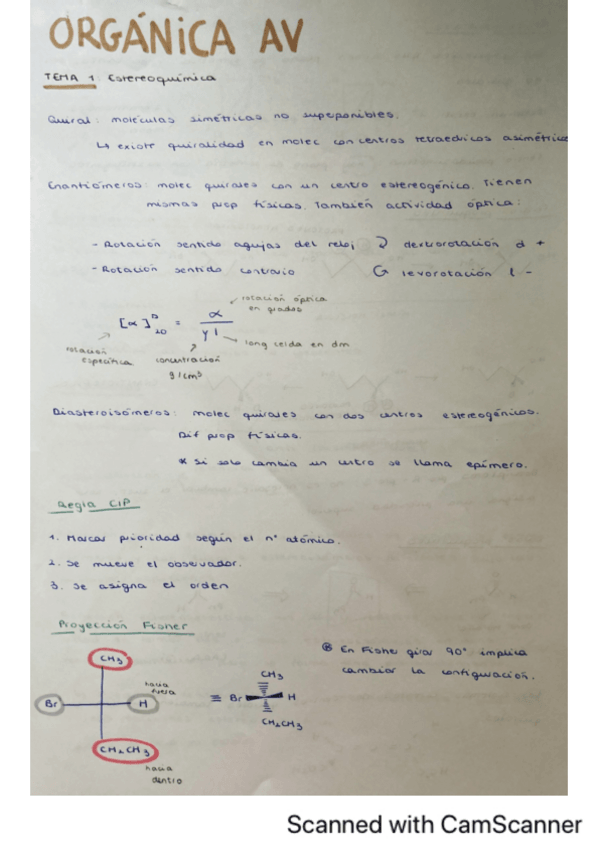 ORGÁNICA AV
TEMA 1 Estereoquímica
Quiral: moléculas simétricas no superponibles.
↳ existe quiralidad en molec con centros tetraedricos asimétrico
Enantiómeros: molec quirales con un centro estereogénico. Tienen
mismas prop físicas. También actividad óptica:
- Rotación sentido agujas del reloj ↻ dextrorotación d +
- Rotación sentido contrario ↺ levorotación l -
rotación óptica
en grados
[α]D20 = α / γ l
long celda en dm
rotación
específica
concentración
g/cm3
Diasteroisómeros: molec quirales con dos centros estereogénicos.
Dif prop físicas.
* Si solo cambia un centro se llama epímero.
Regla CIP
1. Marcar prioridad según el nº atómico.
2. Se mueve el observador.
3. Se asigna el orden
Proyección Fisher
⊗ En Fishe girar 90° implica
cambiar la configuración.
CH3
hacia
fuera
Br H
CH2CH3
hacia
dentro
CH3
≡ Br H
CH2CH3
Scanned with CamScanner